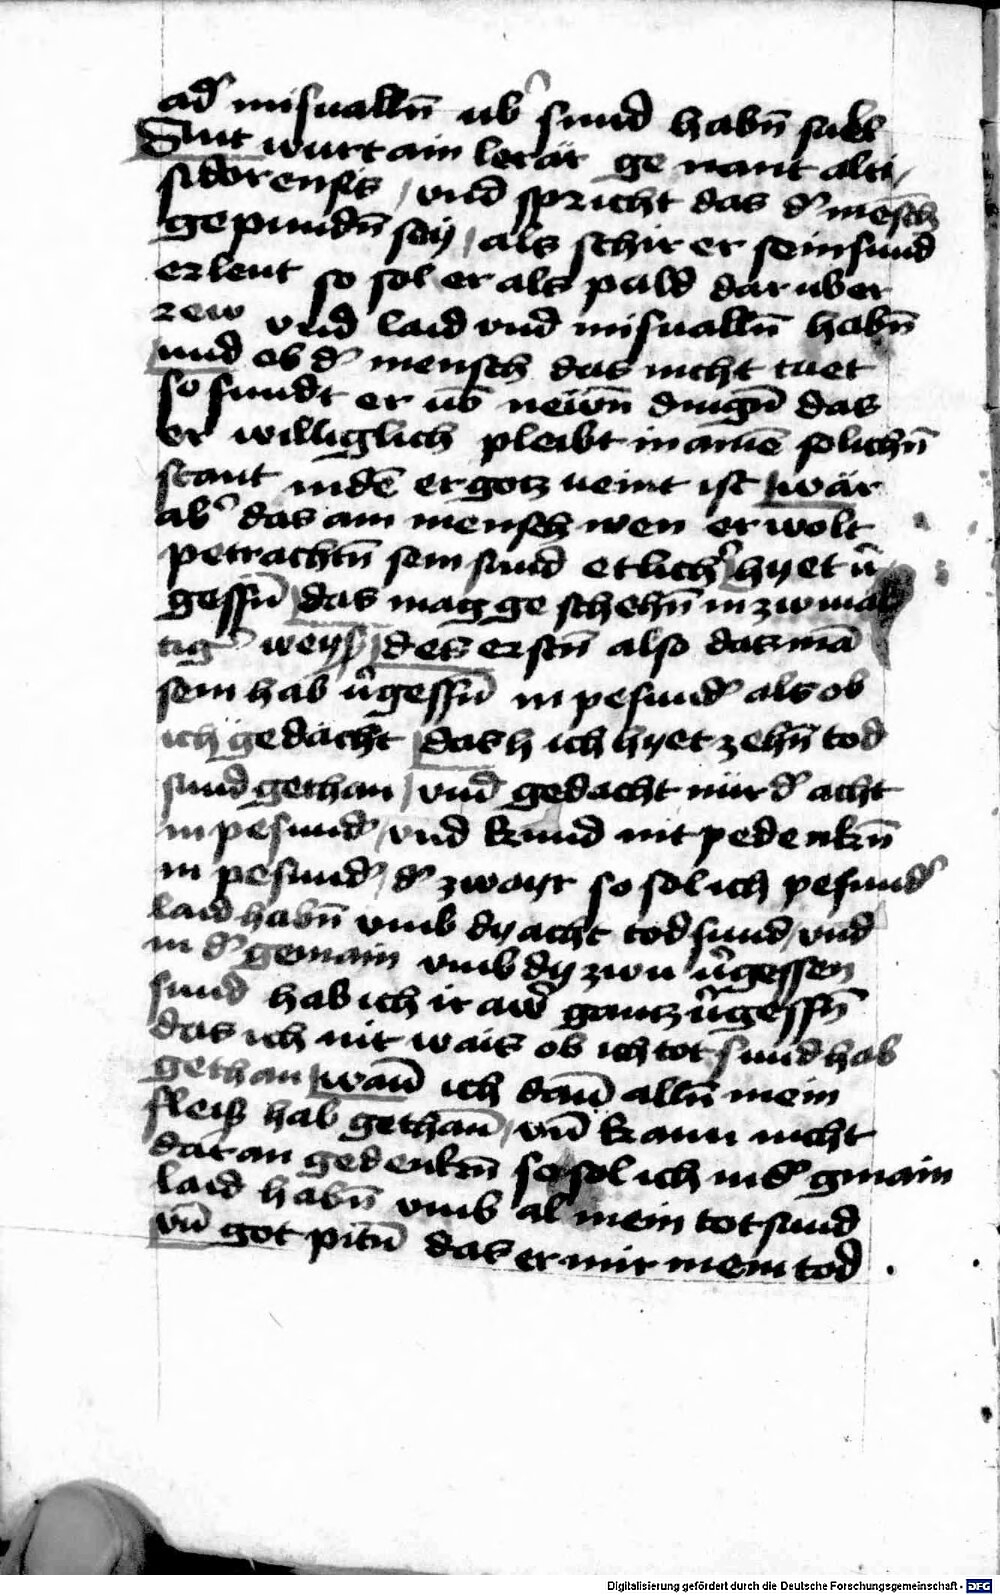 ad' misuallñ ub' sund habñ sukt
Sunt wurt ain lerär ge nant alti,
sidorensis / und spricht das d' mēsch
gepundñ sey / als schir er sein sund
erkent so sol er als pald dar uber
rew und laid und misuallñ habñ
und ob d' mensch das nicht tuet
so sundt er uō newñ dingñ das
er williglich pleibt in ainē solichñ
stant indē er gotz ueint ist wär
ab' das ain mensch wen er wolt
petrachtñ sein sund etlich' hyet ū'
gessñ das mag ge schehñ in zwaial
tig' weyß des erstñ also das mā
sein hab ū'gessñ in pesund' als ob
ich gedächt das h ich hyet zehñ tod
sund gethan / und gedächt nür d' acht
in pesund' / und kund nit pedenkñ
in pesund' / d' zwayr so sol ich pesund'
laid habñ umb dy acht tod sund / und
in d' gemain umb dy zwu ū'gessen
sund hab ich ir aw' gantz ū'gessñ
das ich nit wais ob ich tot sund hab
gethan wañ ich dañ allñ mein
fleiß hab gethañ / uñ kann nicht
daran gedenkñ so sol ich in d' gmain
laid habñ umb al mein tot sund
uñ got pitñ das er mir mein tod
Digitalisierung gefördert durch die Deutsche Forschungsgemeinschaft - DFG